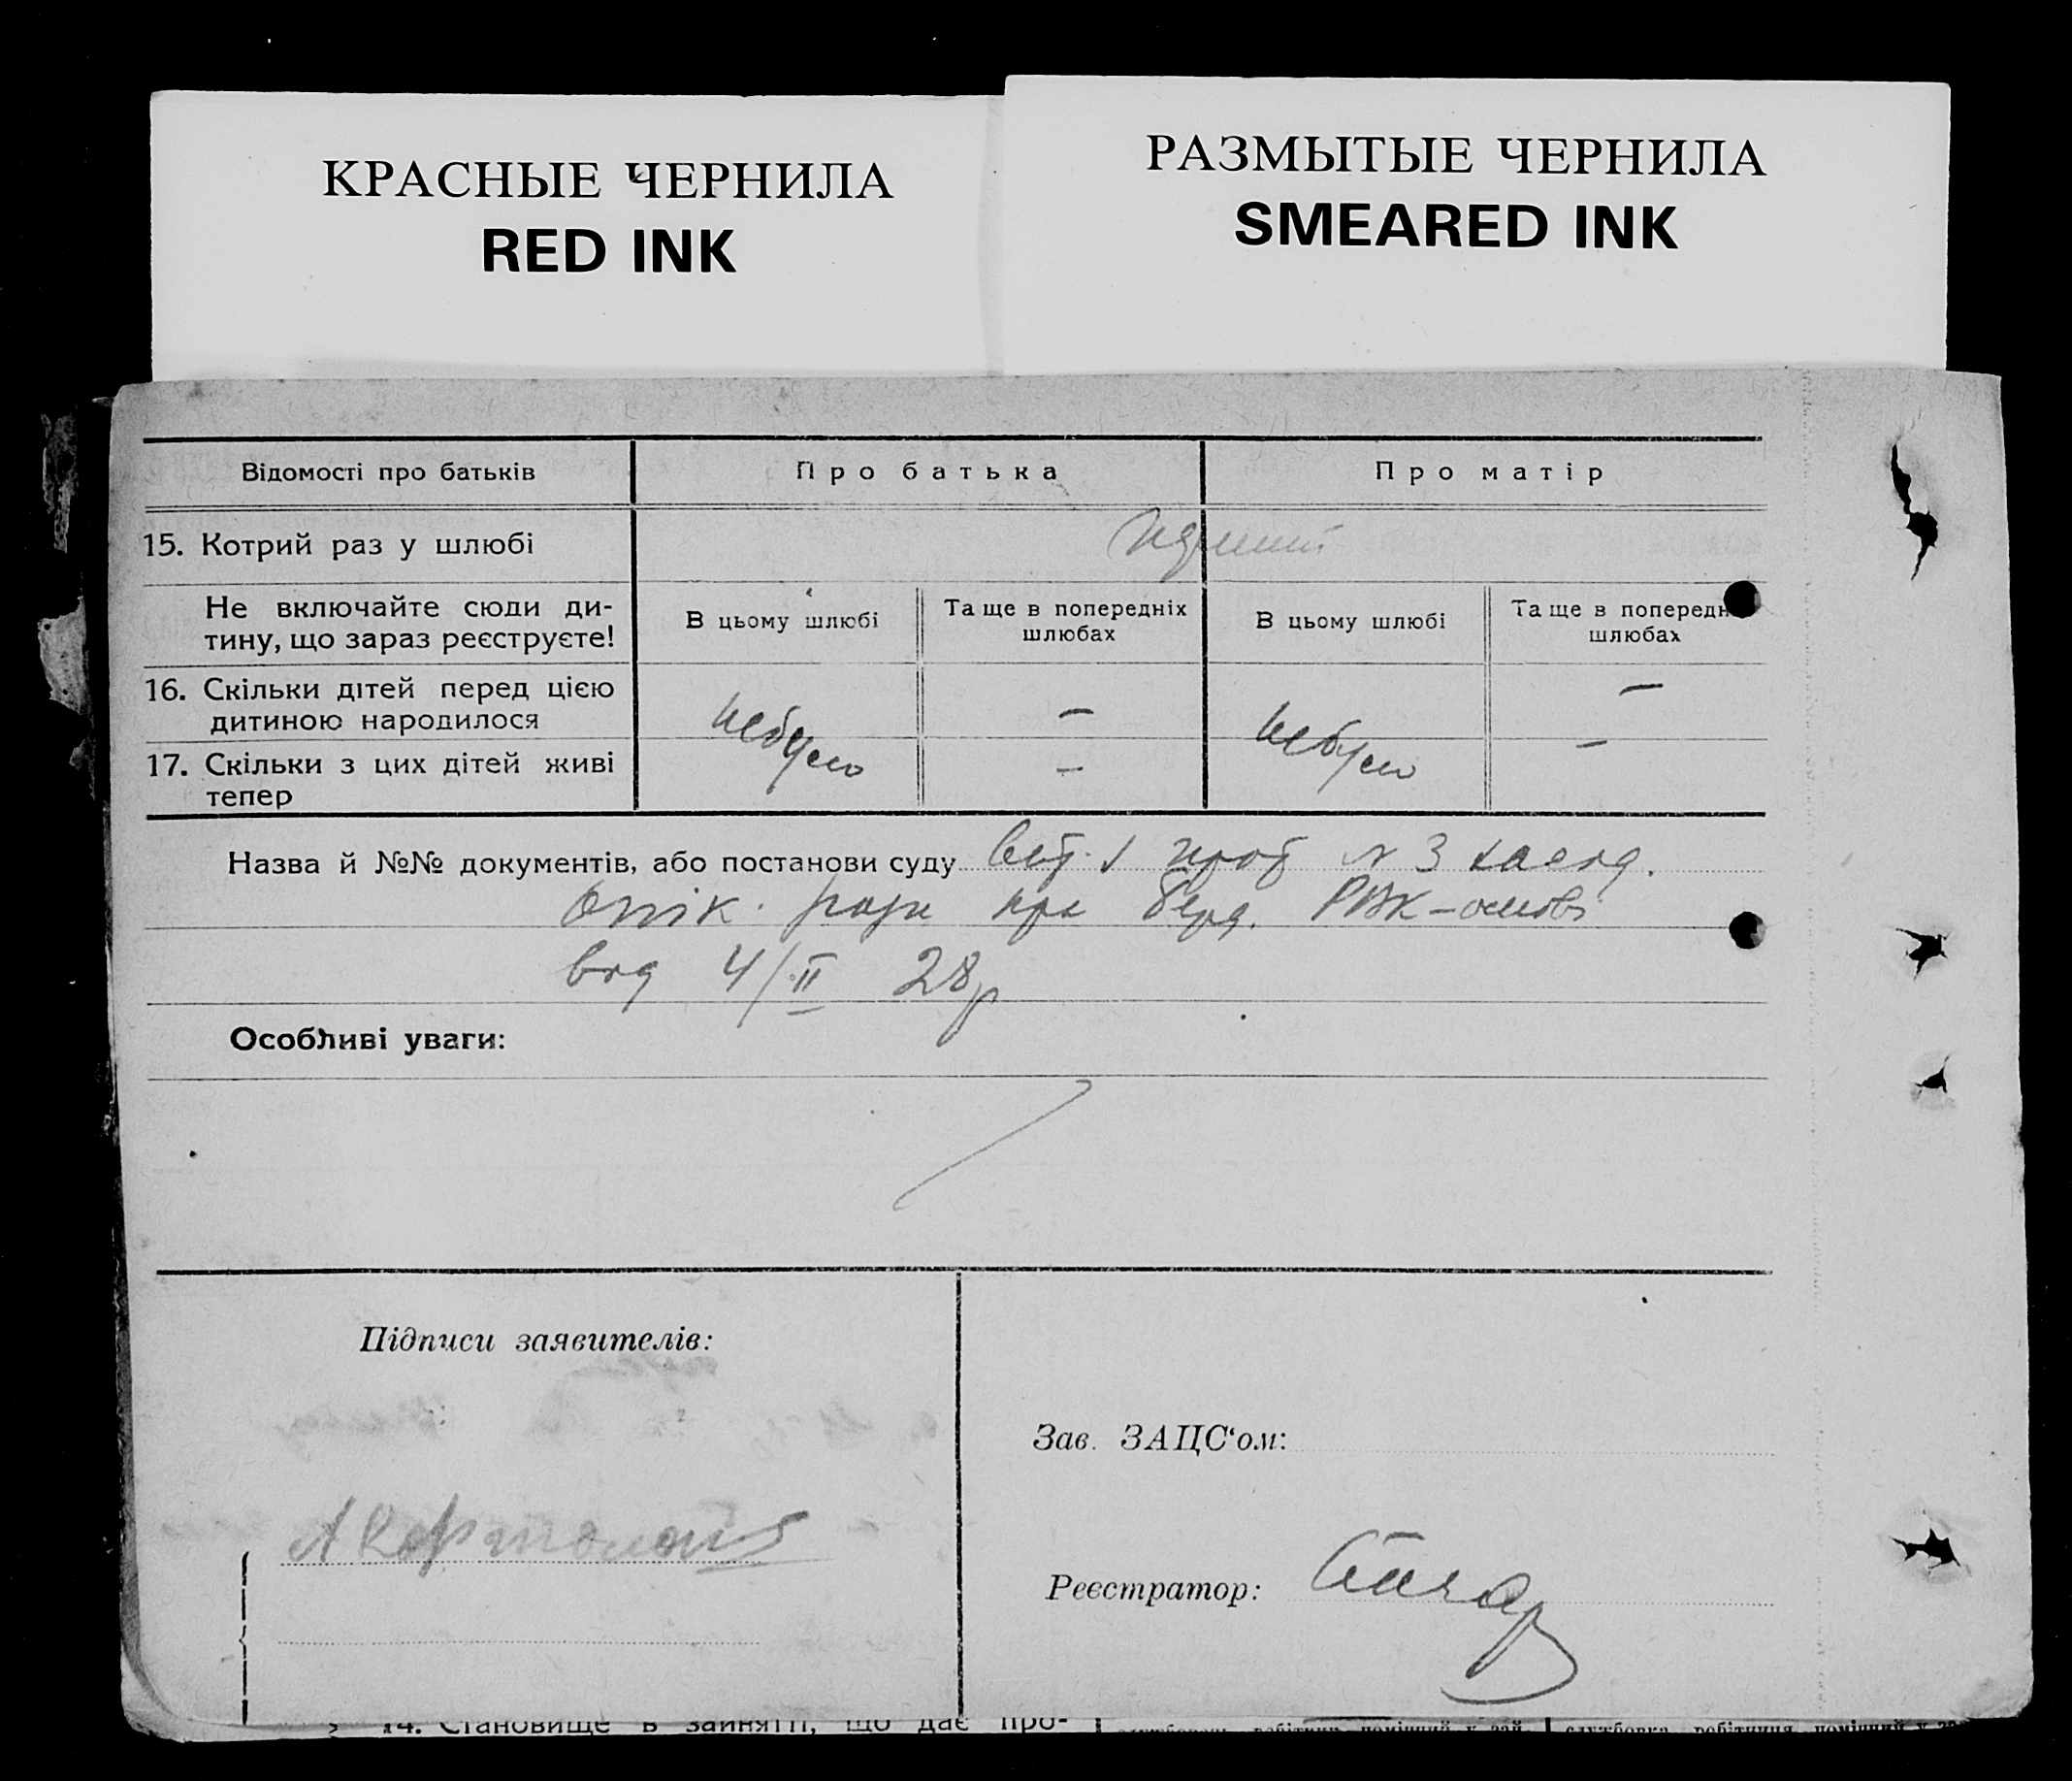 КРАСНЫЕ ЧЕРНИЛА
RED INK
РАЗМЫТЫЕ ЧЕРНИЛА
SMEARED INK
Відомості про батьків
Про батька
Про матір
15. Котрий раз у шлюбі
Не включайте сюди ди-
тину, що зараз реєструєте!
В цьому шлюбі
Та ще в попередніх
шлюбах
В цьому шлюбі
Та ще в попередн
шлюбах
16. Скільки дітей перед цією
дитиною народилося
—
—
17. Скільки з цих дітей живі
тепер
небуло
—
небуло
—
Назва й №№ документів, або постанови суду N 3 засід.
Опік. ради при
від 4/II 28р
Особливі уваги:
Підписи заявителів:
Зав. ЗАЦС‘ом:
Реєстратор:
14. Становище в занятті, що дає про-